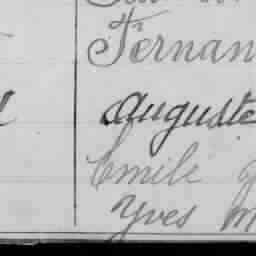 Fernan
Auguste
Emile
Yves